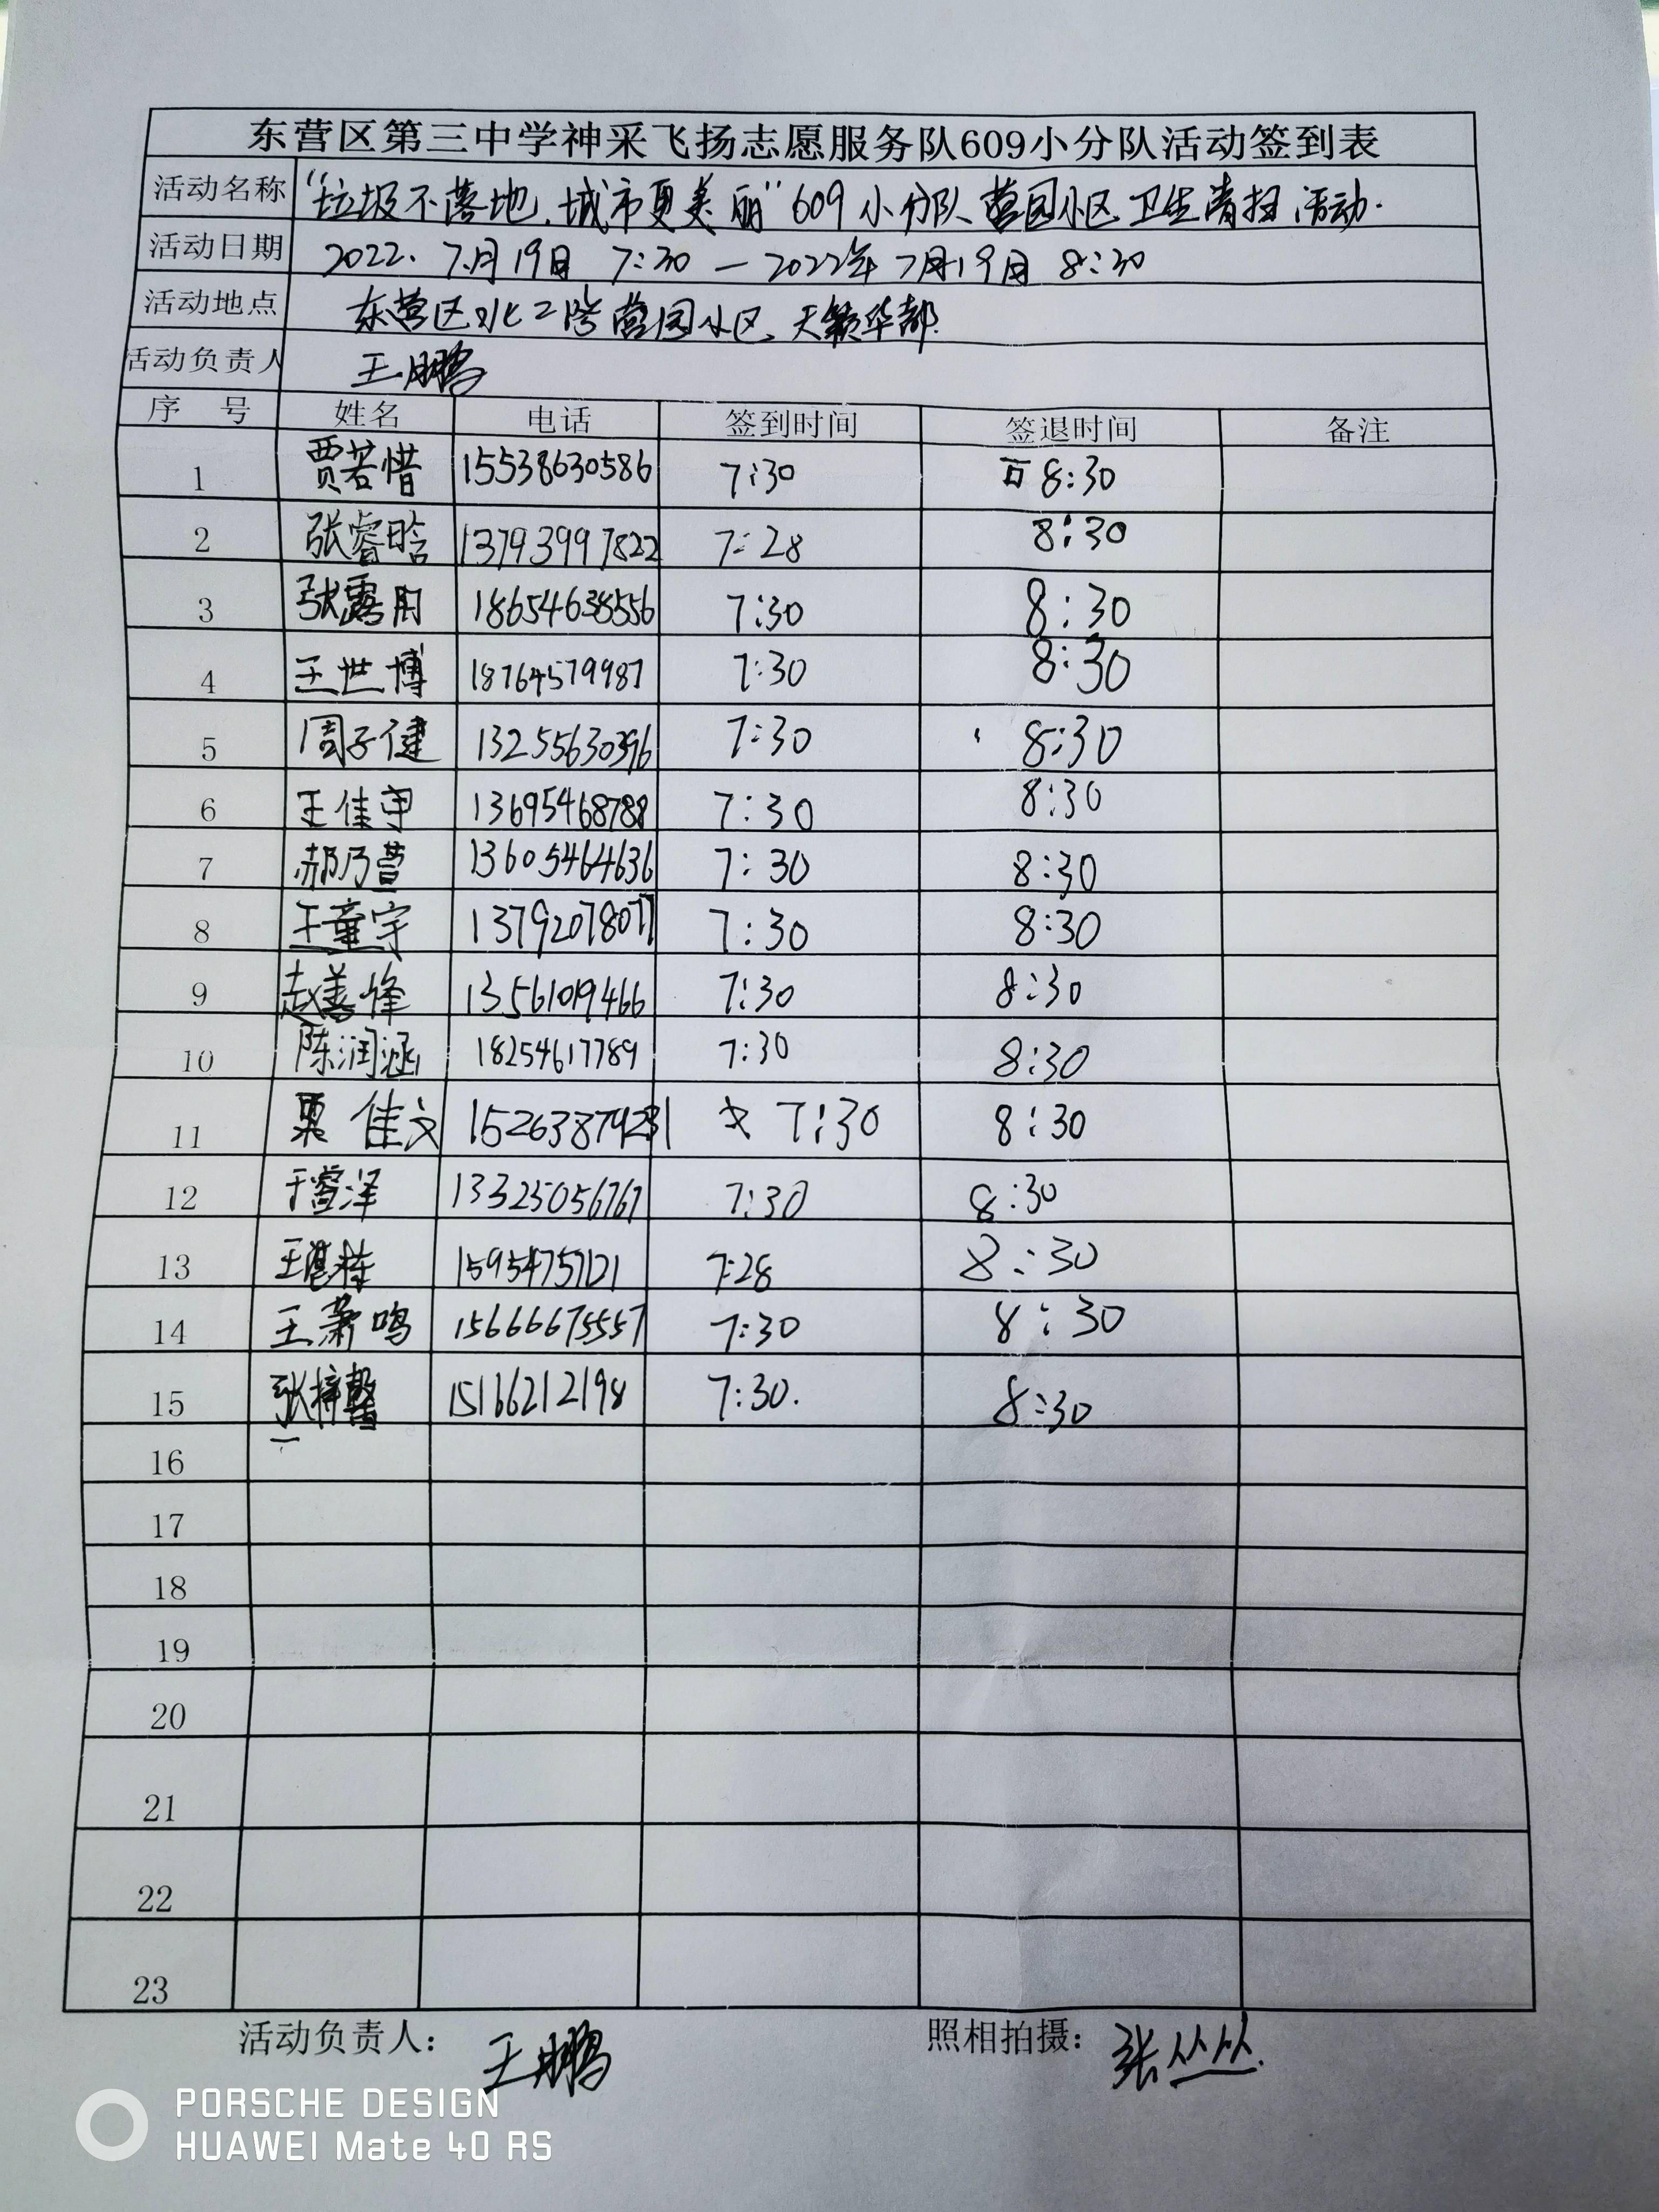 东营区第三中学神采飞扬志愿服务队609小分队活动签到表
活动名称 “垃圾不落地，城市更美丽”609小分队营园小区卫生清扫活动.
活动日期 2022.7月19日 7:30 — 2022年7月19日 8:30
活动地点 东营区北二路营园小区、天籁华都
活动负责人 王鹏
序 号 姓名 电话 签到时间 签退时间 备注
1 贾若惜 15538630586 7:30 8:30
2 张睿晗 13793997822 7:28 8:30
3 张露月 18654638556 7:30 8:30
4 王世博 18764579987 7:30 8:30
5 周子健 13255630396 7:30 8:30
6 王佳宇 13695468788 7:30 8:30
7 郝乃萱 13605464636 7:30 8:30
8 王童宇 13792078077 7:30 8:30
9 赵善烽 13561019466 7:30 8:30
10 陈润涵 18254617789 7:30 8:30
11 栗佳文 7:30 8:30
12 于睿泽 13325056767 7:30 8:30
13 15954757121 7:28 8:30
14 王萧鸣 15666675557 7:30 8:30
15 张梓馨 15166212198 7:30. 8:30
16
17
18
19
20
21
22
23
活动负责人： 王鹏 照相拍摄： 张丛丛.
PORSCHE DESIGN
HUAWEI Mate 40 RS